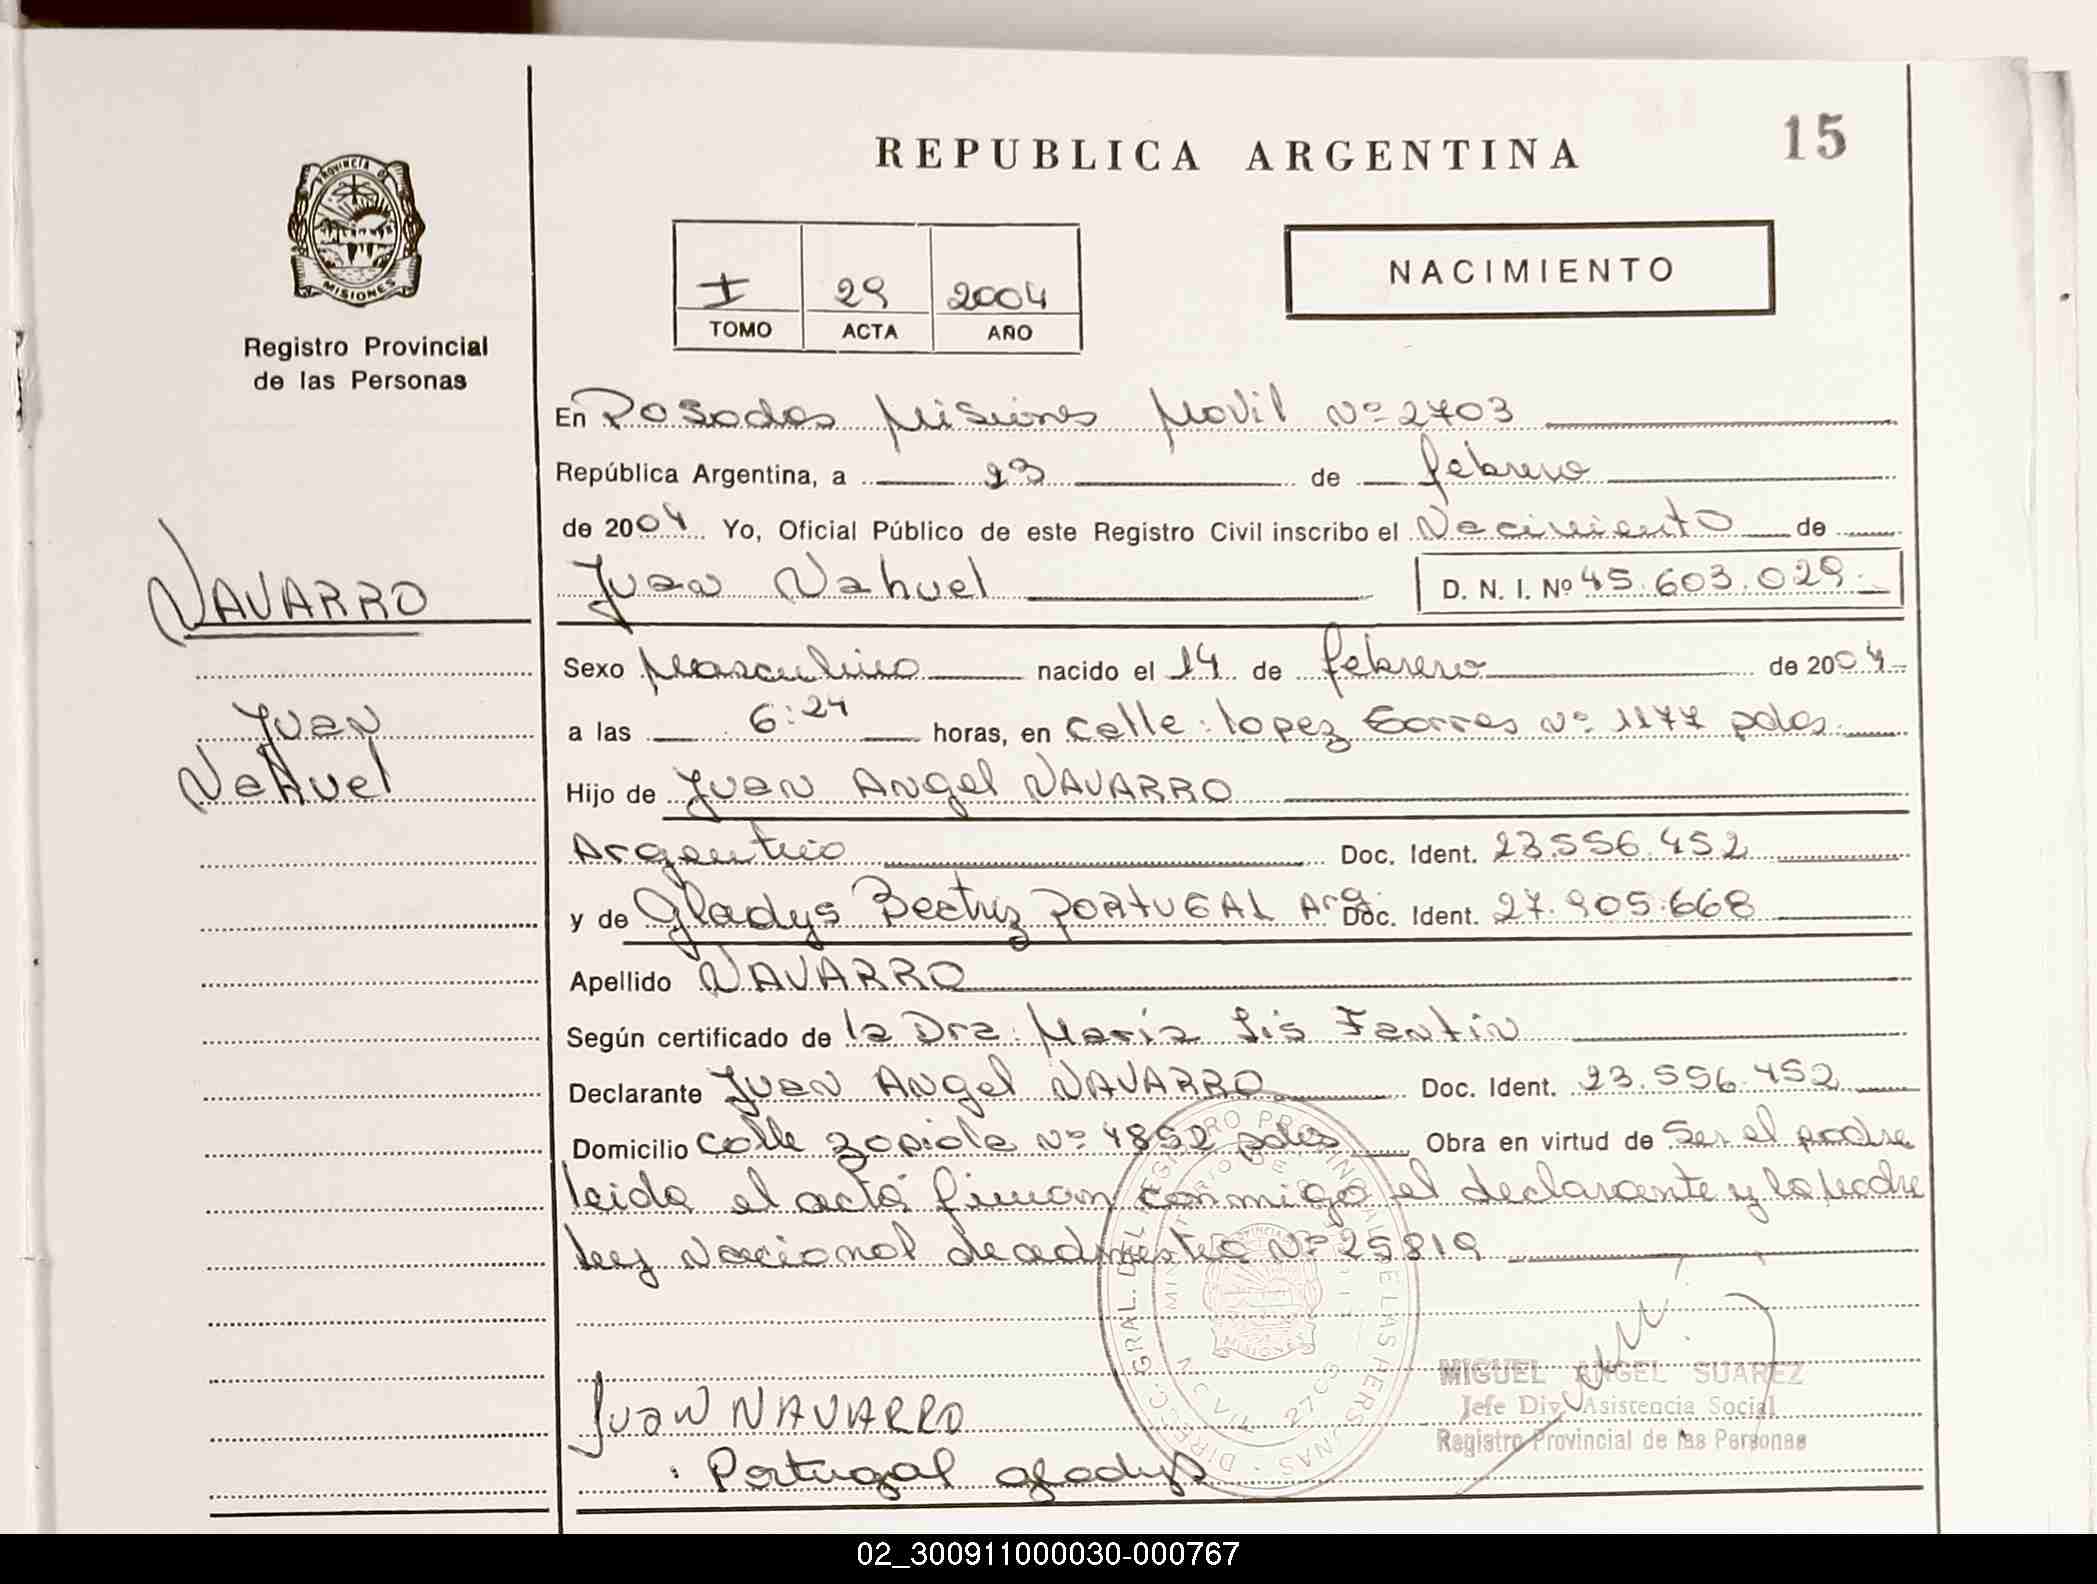 REPUBLICA ARGENTINA
15
PROVINCIA DE
MISIONES
Registro Provincial
de las Personas
NACIMIENTO
I 29 2004
TOMO ACTA AÑO
En Posadas Misiones Movil Nº 2703
República Argentina, a 23 de febrero
de 2004 Yo, Oficial Público de este Registro Civil inscribo el Nacimiento de
NAVARRO
Juan Nahuel
D. N. I. Nº 45.603.029.
Sexo Masculino nacido el 14 de febrero de 2004
Juan
Nahuel
a las 6:24 horas, en Calle: lopez torres Nº 1177 pdas.
Hijo de Juan Angel NAVARRO
Argentino Doc. Ident. 23.556.452
y de Gladys Beatriz PORTUGAL Arg. Doc. Ident. 27.905.668
Apellido NAVARRO
Según certificado de la Dra: María Lis Fantin
Declarante Juan Angel NAVARRO Doc. Ident. 23.556.452
Domicilio Calle zapiola Nº 4852 pdas Obra en virtud de Ser el padre
leida el acta firman conmigo el declarante y la madre
ley Nacional de admestia Nº 25819
DIRECC. GRAL. DEL REGISTRO PROVINCIAL DE LAS PERSONAS
MISIONES
2703
MIGUEL ANGEL SUAREZ
Jefe Div. Asistencia Social
Registro Provincial de las Personas
Juan NAVARRO
Portugal gladys
02_300911000030-000767